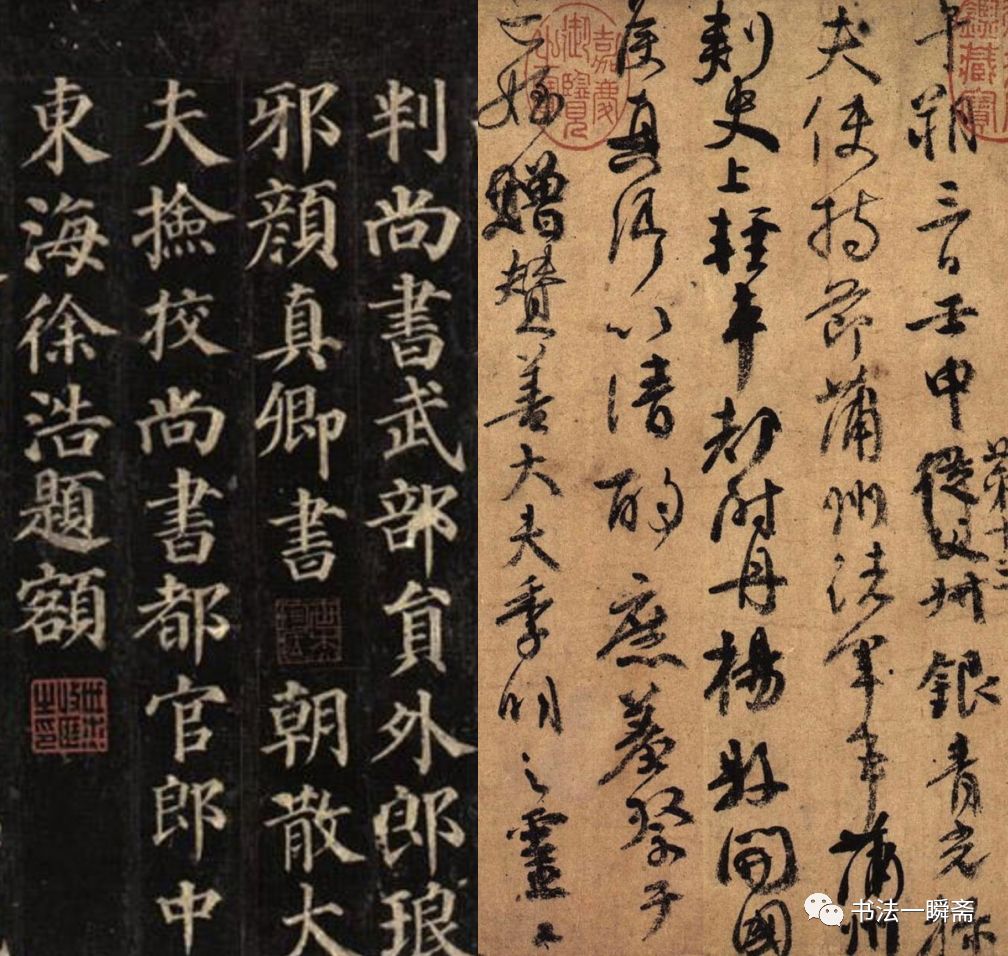 判尚書武部員外郎琅
邪顏真卿書 朝散大
夫撿挍尚書都官郎中
東海徐浩題額
午朔三日壬申從父銀青光祿
第十三
夫使持節蒲州諸軍事蒲州
刺史上輕車都尉丹楊縣開國
侯真卿以清酌庶羞祭于
亡姪贈贊善大夫季明之靈
嘉慶御覽之寶
鑑藏寶
书法一瞬斋